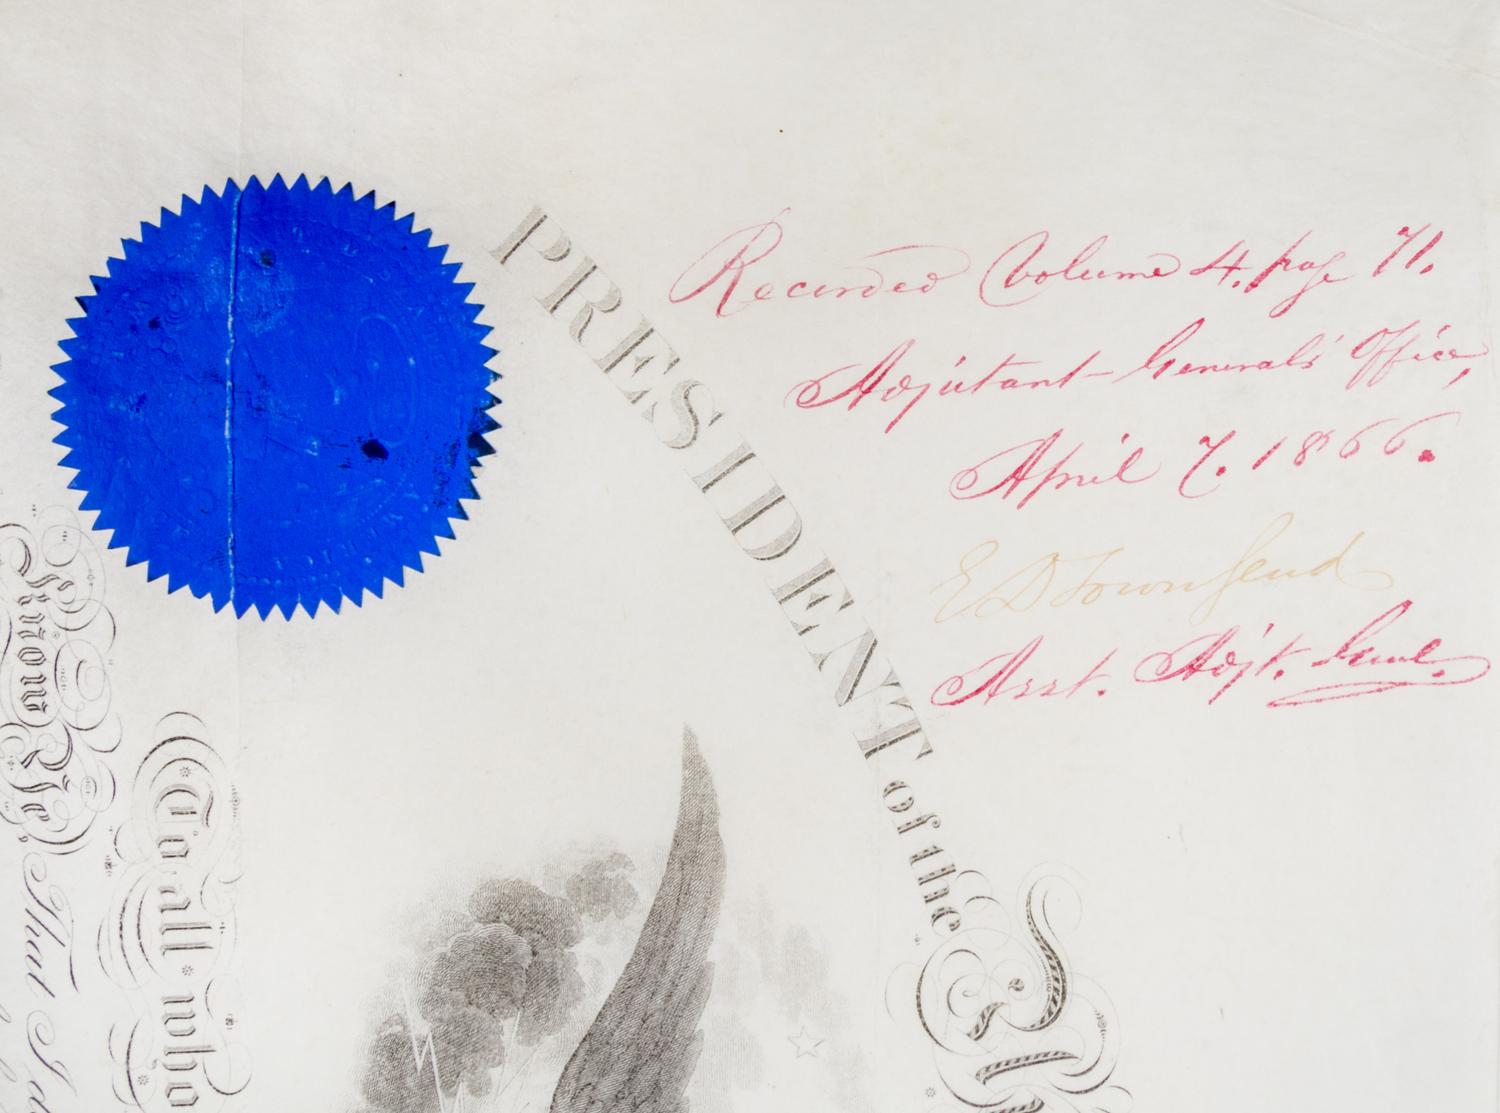 Recorded Volume 4. page 71.
Adjutant Generals' Office,
April 7. 1866.
E D Townsend
Asst. Adjt. Genl.
PRESIDENT of the
To all who
Know Ye, That I